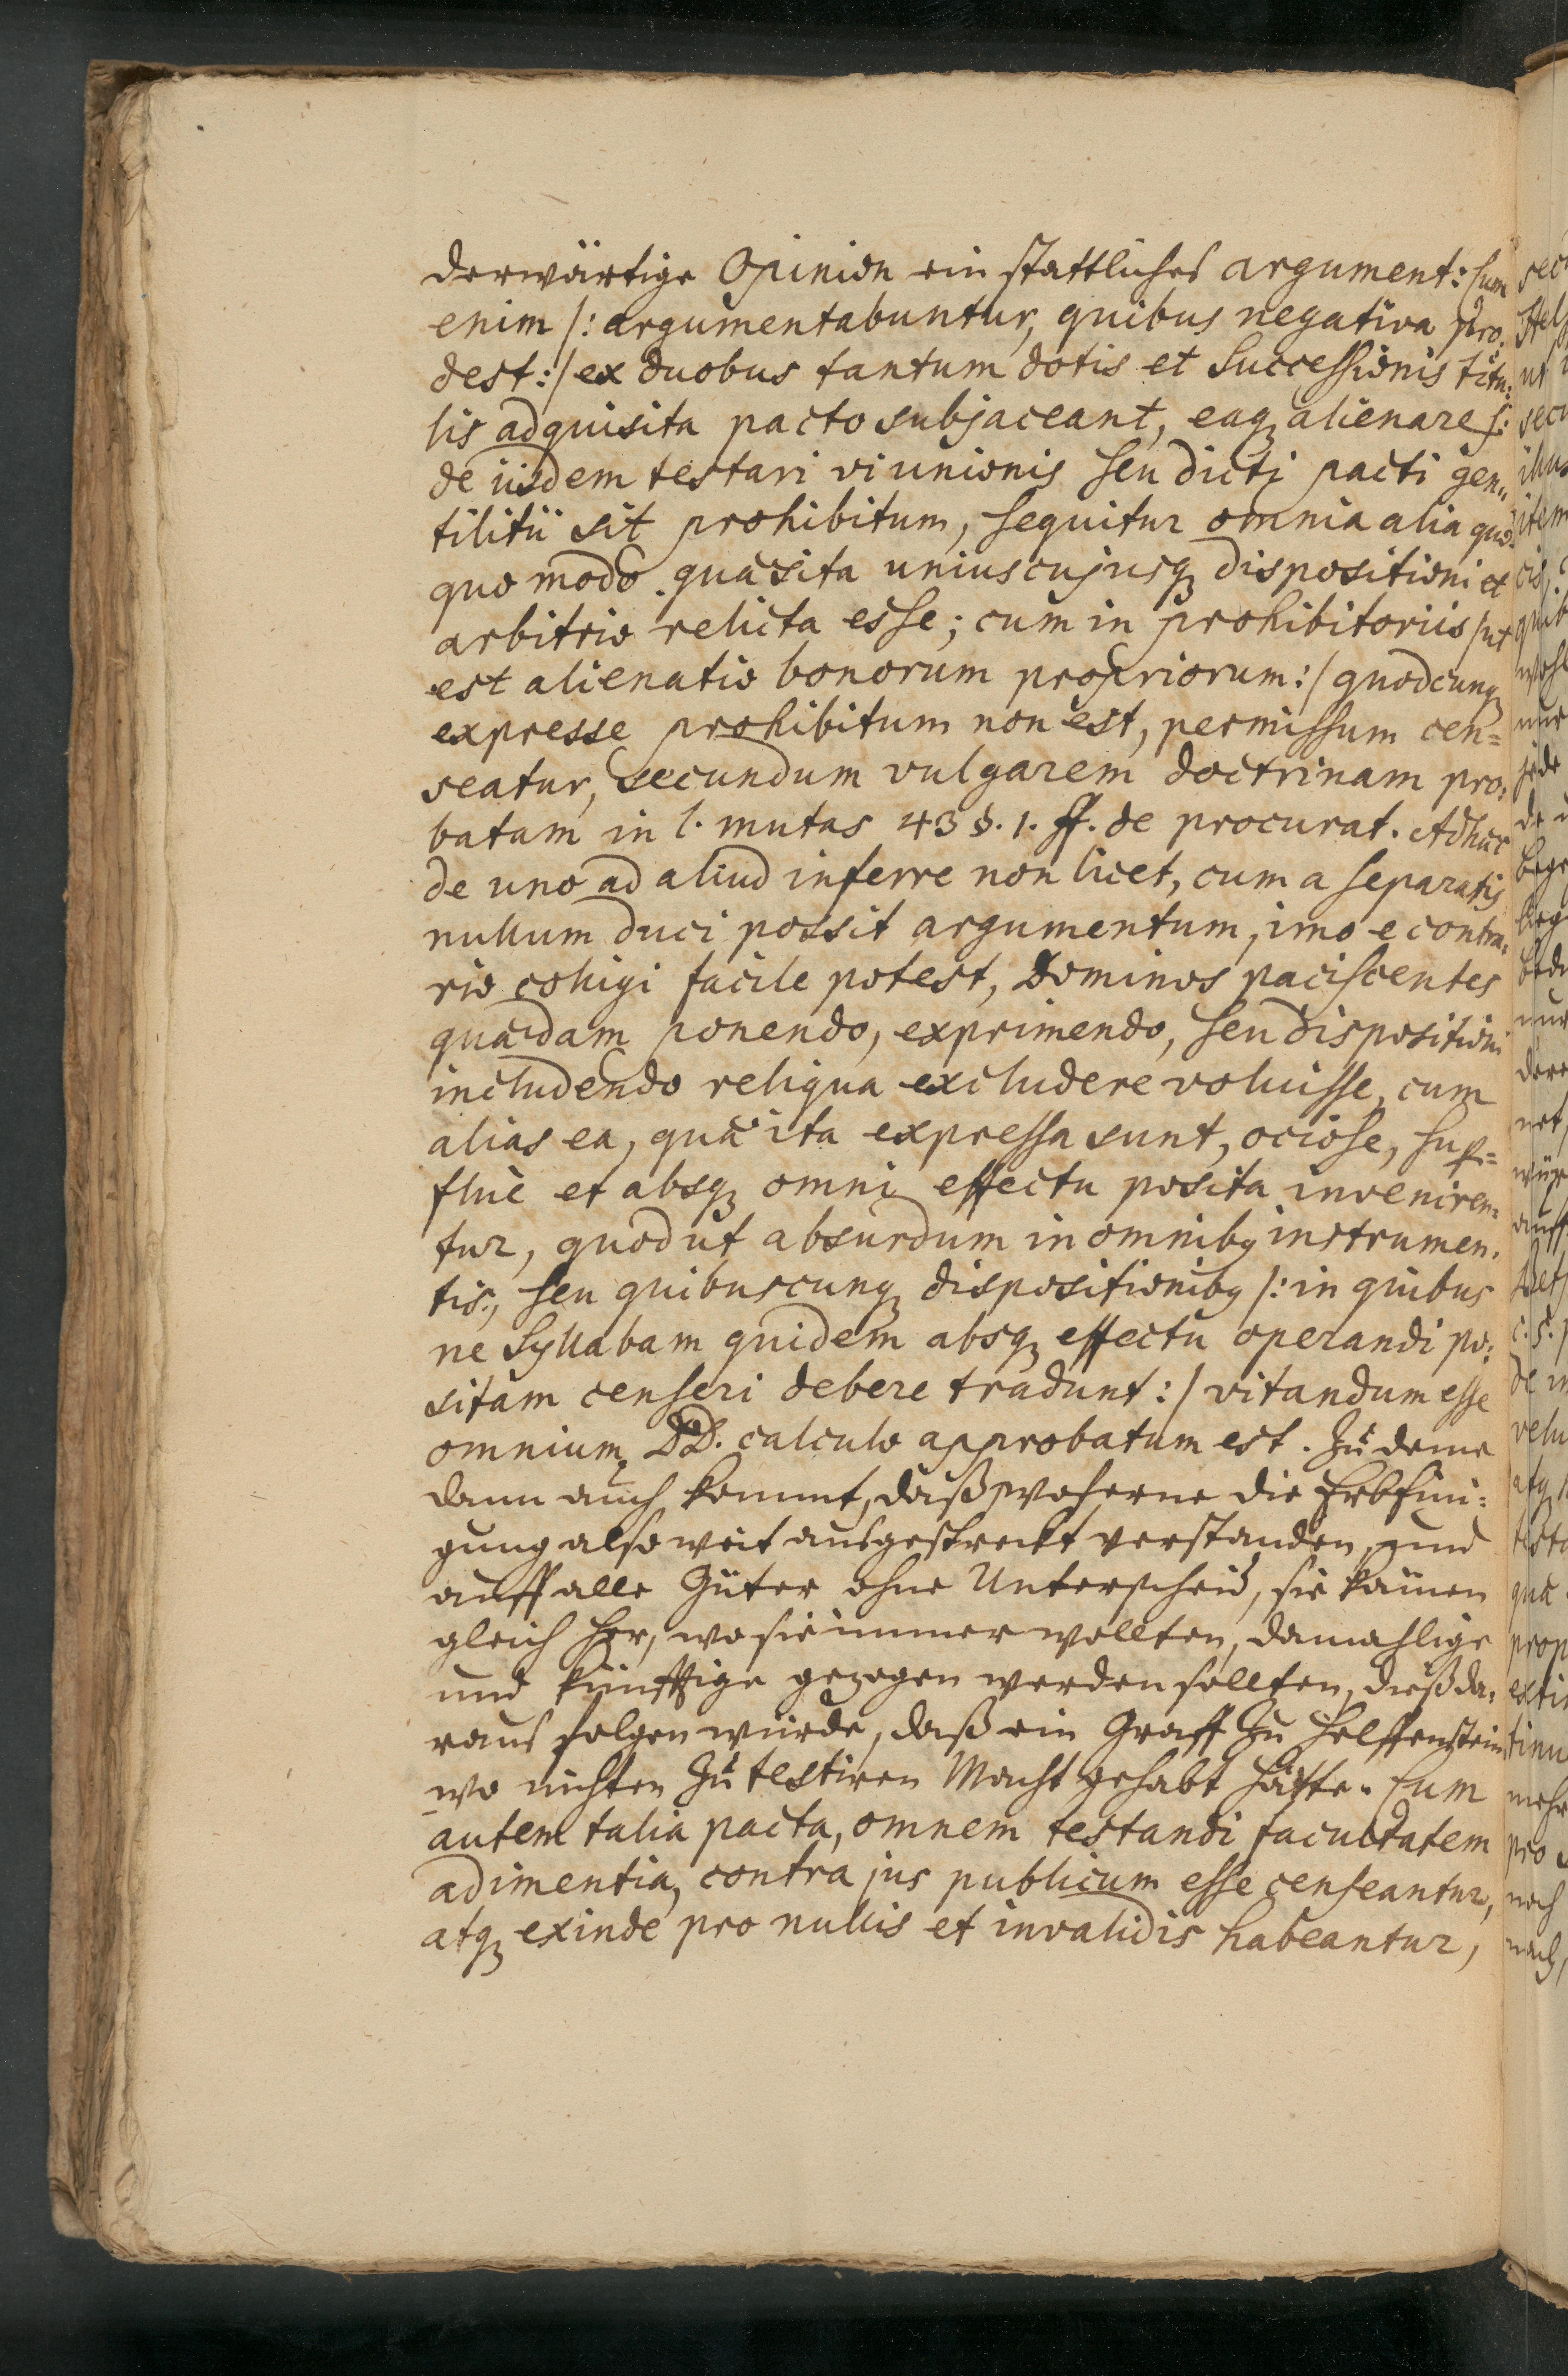 derwärtige Opinion ein stattliches argument: Cum
enim /: argumentabuntur, quibus negativa pro-
dest :/ ex duobus tantum dotis et Successionis titu-
lis adquisita pacto subjaceant, eaq3 alienare s:
de iisdem testari vi unionis seu dicti pacti gen-
tilitii sit prohibitum, sequitur omnia alia quo-
quo modo quæsita uniuscujusq3 dispositioni et
arbitrio relicta esse; cum in prohibitoriis /ut
est alienatio bonorum propriorum :/ quodcunq3
expresse prohibitum non est, permissum cen=
seatur, secundum vulgarem doctrinam pro-
batam in l. mutus 43 §. 1. ff. de procurat. Adhæc
de uno ad aliud inferre non licet, cum a separatis
nullum duci possit argumentum, imo e contra-
rio colligi facile potest, Dominos paciscentes
quædam ponendo, exprimendo, seu dispositioni
includendo reliqua excludere voluisse, cum
alias ea, quæ ita expressa sunt, ociose, sup-
fluè et absq3 omni effectu posita inveniren-
tur, quod ut absurdum in omnib9 instrumen-
tis, seu quibuscunq3 dispositionib9 /: in quibus
ne Syllabam quidem absq3 effectu operandi po-
sitam censeri debere tradunt :/ vitandum esse
omnium DD. calculo approbatum est. Zu deme
dann auch kommt, daß, woferne die Erbfini-
gung also weit ausgestreckt verstanden, und
auff alle Güter ohne Unterscheid, sie kämen
gleich her, wo sie immer wollten, damahlige
und künfftige gezogen werden sollten, dieß da-
raus folgen würde, daß ein Graff zu Helffenstein
wo nichten zu testiren Macht gehabt hätte. Cum
autem talia pacta, omnem testandi facultatem
adimentia, contra jus publicum esse censeantur,
atq3 exinde pro nullis et invalidis habeantur,